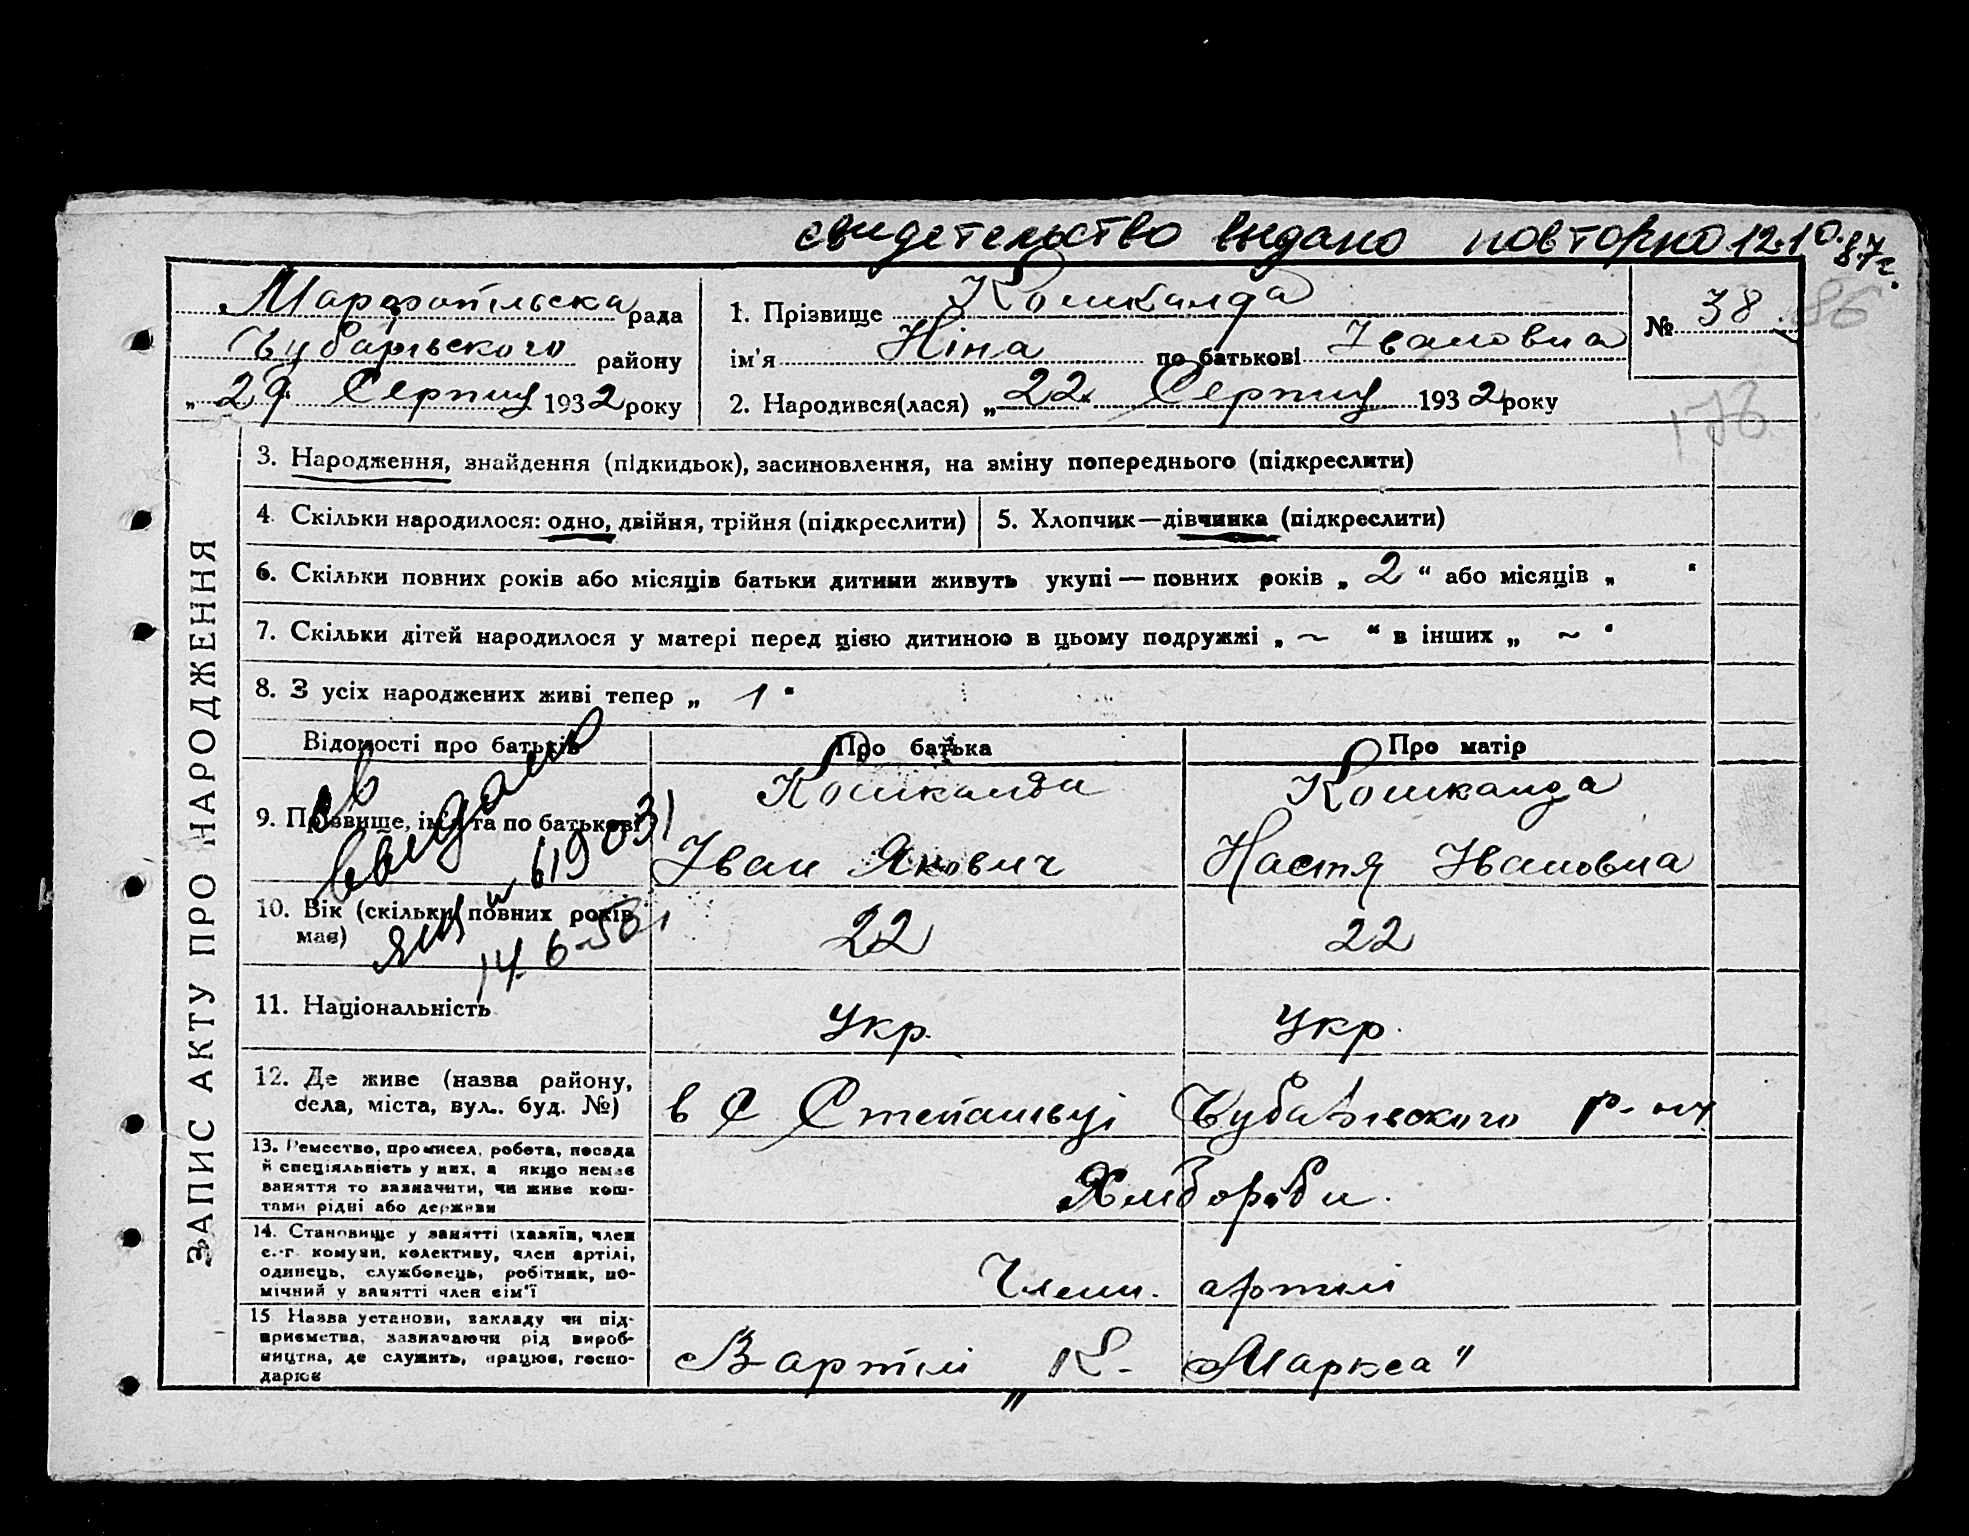 свидетельство выдано повторно 12.10.87г.
Марфопільська рада
Чубарівського району
„29" Серпня 1932 року
1. Прізвище Кошканда
ім'я Ніна по батькові Івановна
2. Народився(лася) „22" Серпня 1932 року
№ 38
86
176
ЗАПИС АКТУ ПРО НАРОДЖЕННЯ
3. Народження, знайдення (підкидьок), засиновлення, на зміну попереднього (підкреслити)
4. Скільки народилося: одно, двійня, трійня (підкреслити)
5. Хлопчик—дівчинка (підкреслити)
6. Скільки повних років або місяців батьки дитини живуть укупі — повних років „ 2 “ або місяців „ “
7. Скільки дітей народилося у матері перед цією дитиною в цьому подружжі „ ~ “ в інших „ ~ “
8. З усіх народжених живі тепер „ 1 “
Відомості про батьків
Про батька
Про матір
9. Прізвище, ім'я та по батькові
Кошканда
Іван Якович
Кошканда
Настя Івановна
св
выдано
14.6.50
10. Вік (скільки повних років має)
22
22
11. Національність
Укр.
Укр.
12. Де живе (назва району,
села, міста, вул., буд. №)
в С Степанівці Чубарівського р-ну
13. Ремество, промисел, робота, посада
й спеціяльність у них, а якщо немає
заняття то зазначити, чи живе кош-
тами рідні або держави
Хлібороби.
14. Становище у занятті (хазяїн, член
с.-г. комуни, колективу, член артілі,
одинець, службовець, робітник, по-
мічний у занятті член сім'ї
Члени. артілі
15 Назва установи, закладу чи під-
приємства, зазначаючи рід вироб-
ництва, де служить, працює, госпо-
дарює
В артілі „К. Маркса"